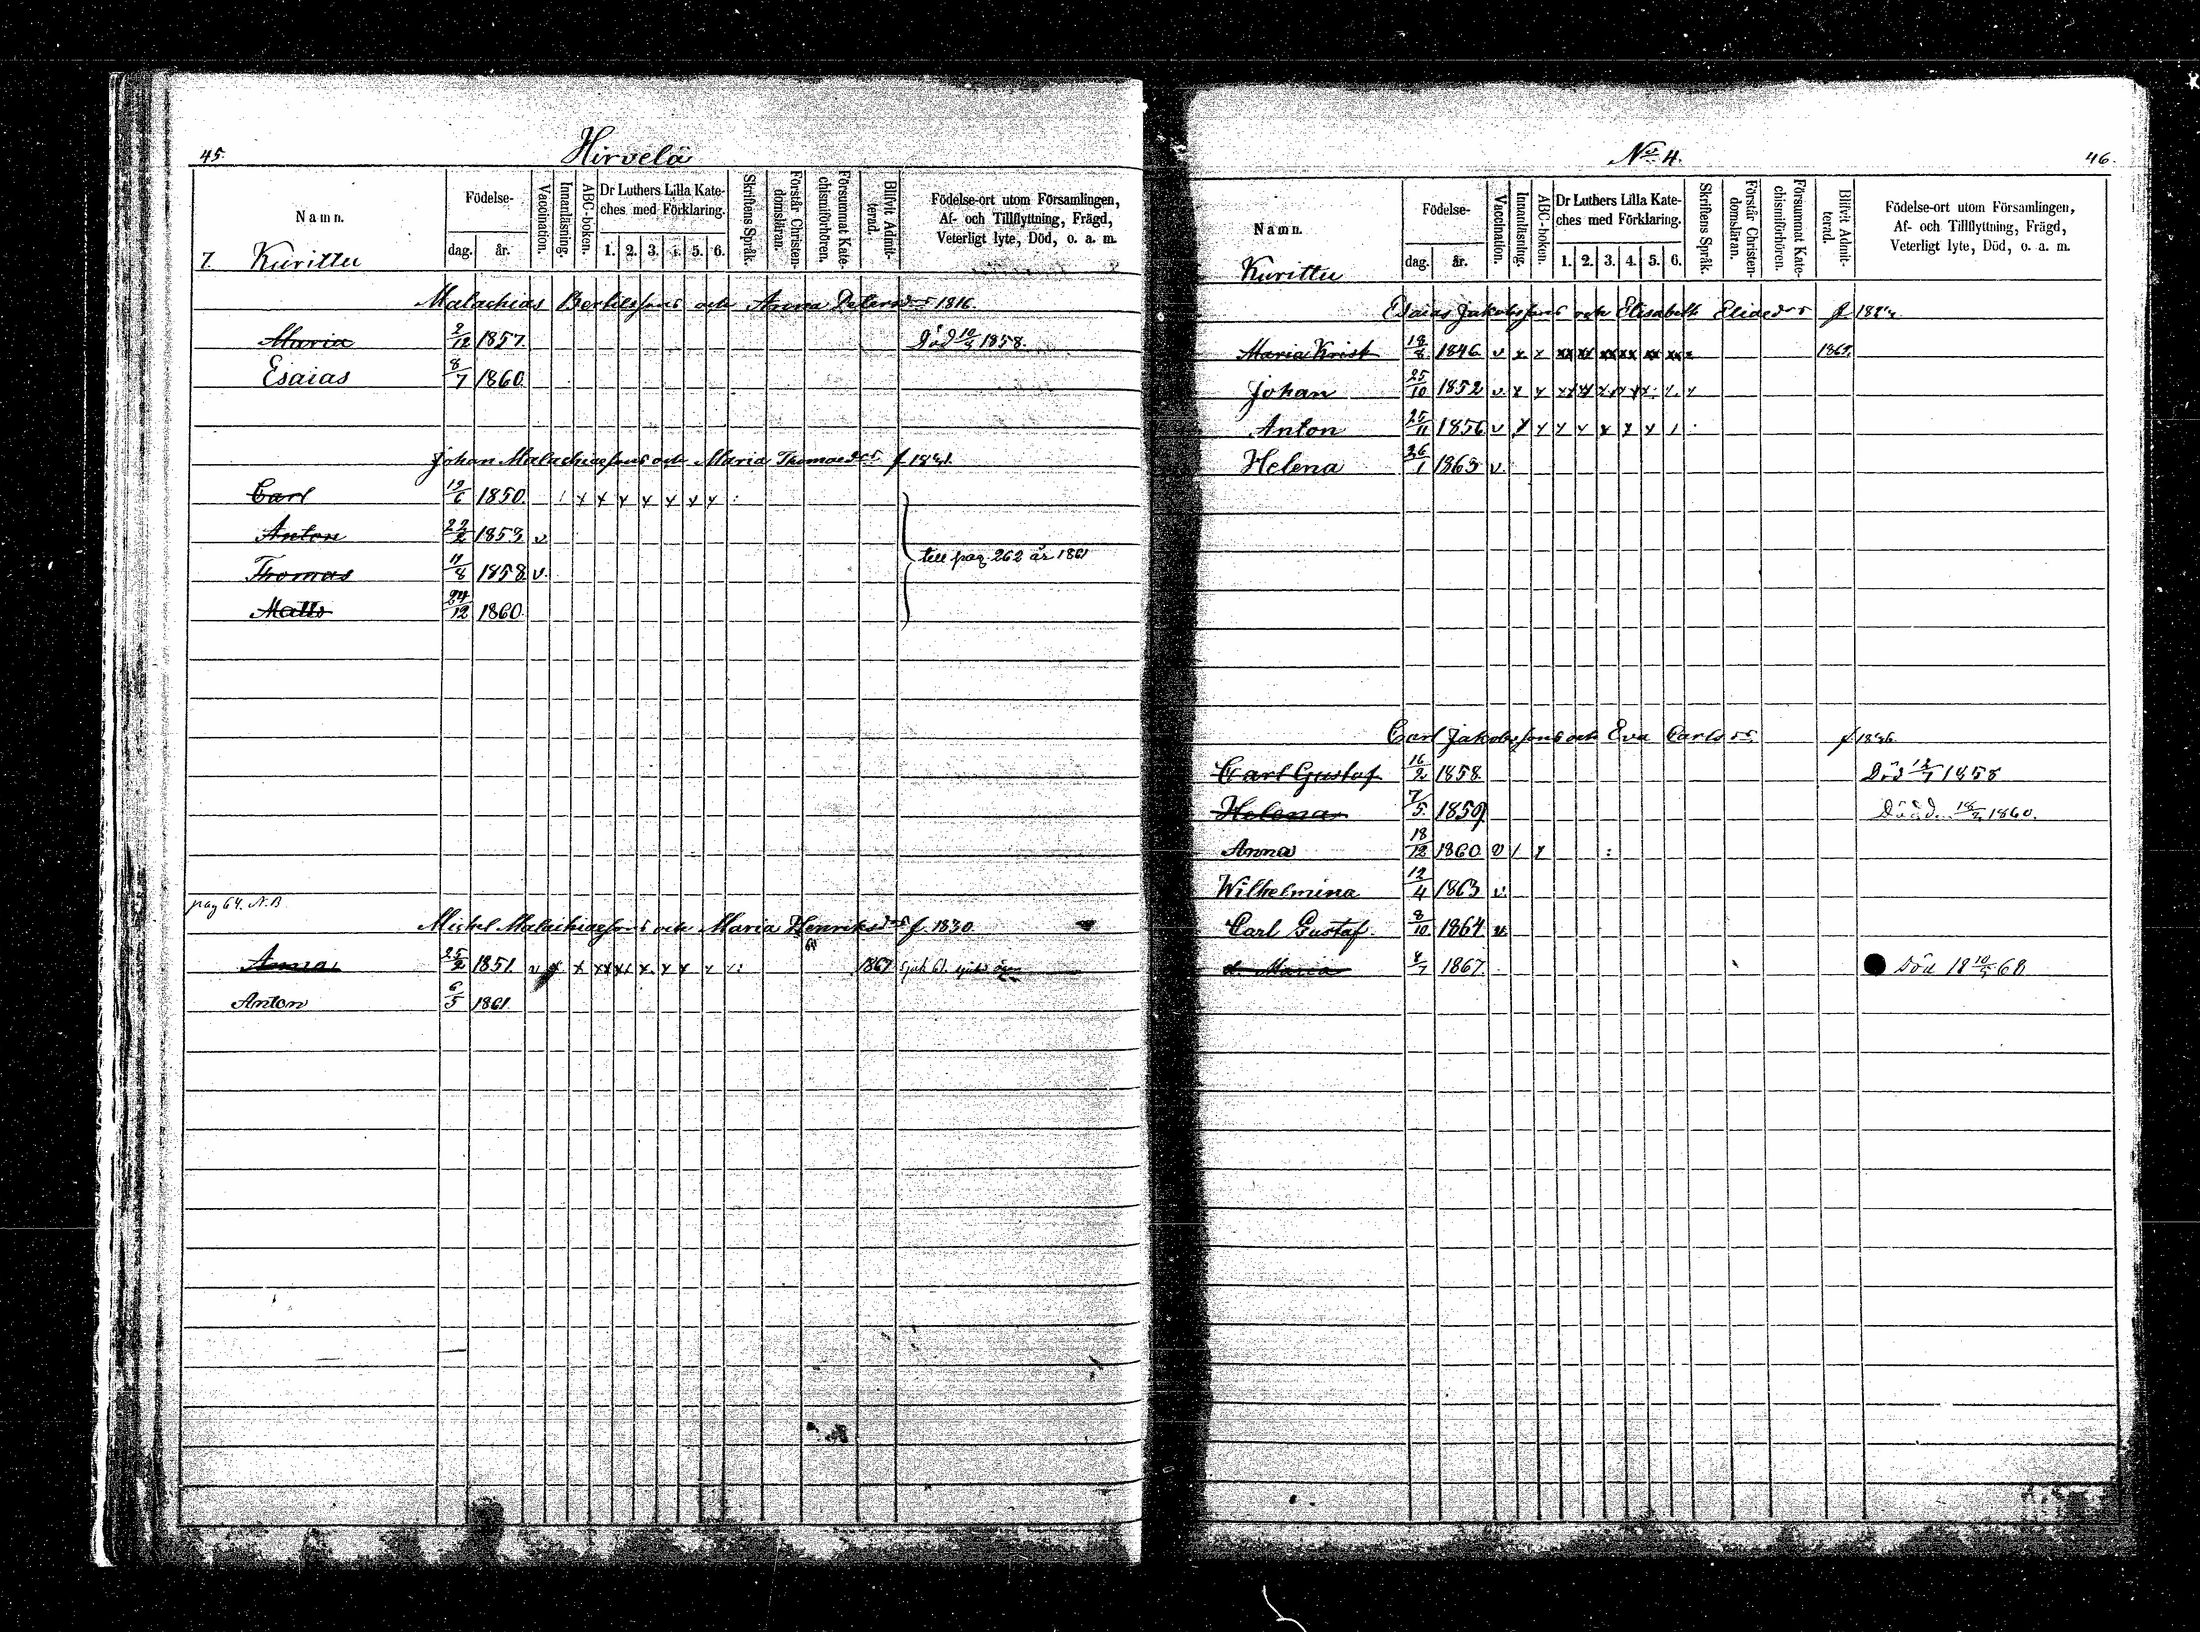 45. Hirvelä
Namn. Födelse- dag. år. Vaccination. Innanläsning. ABC-boken. Dr Luthers Lilla Kateches med Förklaring. 1. 2. 3. 4. 5. 6. Skriftens Språk. Förstår Christendomsläran. Försummat Katechismiförhören. Blifvit Admitterad. Födelse-ort utom Församlingen, Af- och Tillflyttning, Frägd, Veterligt lyte, Död, o. a. m.
7. Kurittu
Malachias Bertilssons och Anna Petersd:s 1816.
Maria 2/12 1857. Död 1858.
Esaias 8/7 1860.
Johan Malachiassons och Maria Thomaed:s f.
Carl 19/6 1850. x x x x x x x
Anton 22/2 1853 v
Thomas 11/8 1858 v.
Matts 24/12 1860.
till pag 262 år 1861
pag 64. N.B.
Michel Malachiassons och Maria Henriksd:s f. 1830.
Anna 25/2 1851. v x x xx xx x x x x 1867
Anton 6/5 1861.
No 4. 46.
Namn. Födelse- dag. år. Vaccination. Innanläsning. ABC-boken. Dr Luthers Lilla Kateches med Förklaring. 1. 2. 3. 4. 5. 6. Skriftens Språk. Förstår Christendomsläran. Försummat Katechismiförhören. Blifvit Admitterad. Födelse-ort utom Församlingen, Af- och Tillflyttning, Frägd, Veterligt lyte, Död, o. a. m.
Kurittu
Esaias Jakobssons och Elisabeth Eliaed:s f.
Maria Krist 18/8 1846 v x x xx xx xx xx xx xx x
Johan 25/10 1852 v. x x xx xx x x x x x x x x
Anton 25/11 1856 v x x x x x x x
Helena 26/1 1863 v.
Carl Jakobssons och Eva Carlsd:s f. 1836.
Carl Gustaf 16/2 1858 Död 1858
Helena 7/5 1859 Död 1860.
Anna 18/12 1860 v / x :
Wilhelmina 12/4 1863 v.
Carl Gustaf 8/10 1864 v.
d. Maria 8/7 1867 Död 18 68